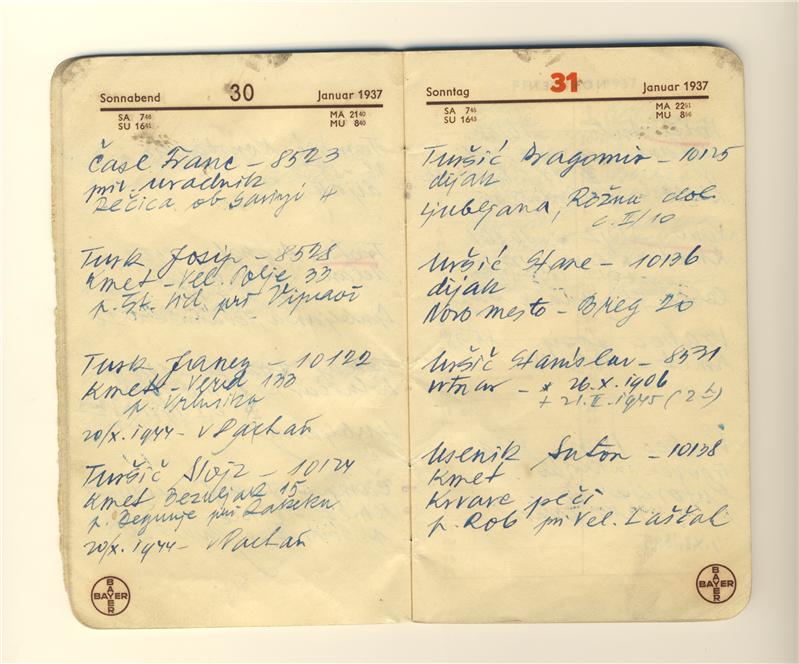 Sonnabend 30 Januar 1937
SA 7 46 MA 21 40
SU 16 41 MU 8 40
Čase Franc – 8523
priv. uradnik
Rečica ob Savinji 4
Turk Josip – 8528
kmet – Vel. Polje 33
p. Št. Vid pri Vipavi
Turk Janez – 10122
kmet – Verd 133
p. Vrhnika
20/X. 1944 – v Dachau
Turšič Alojz – 10124
kmet Bezuljak 15
p. Begunje pri Rakeku
20/X. 1944 – Dachau
BAYER
BAYER
Sonntag 31 Januar 1937
SA 7 45 MA 22 51
SU 16 43 MU 8 56
Turšić Dragomir – 10125
dijak
Ljubljana, Rožna dol.
c. II/10
Uršić Stane – 10136
dijak
Novo mesto – Breg 20
Uršič Stanislav – 8531
vrtnar – * 26.X.1906
+ 21.II.1945 (2 b)
Usenik Anton – 10138
kmet
Krvave peči
p. Rob pri Vel. Laščah
BAYER
BAYER